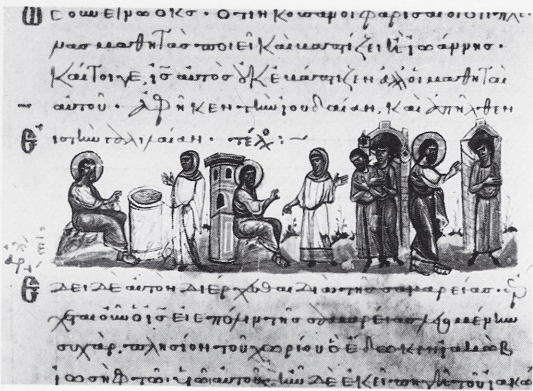 ὡς οὖν ἔγνω ὁ κς· ὅτι ἤκουσαν οἱ φαρισαῖοι ὅτι ις
νας μαθητὰς ποιεῖ καὶ βαπτίζει ἢ ἰωάννης·
καί τοι γε ις αὐτὸς οὐκ ἐβάπτιζεν ἀλλ' οἱ μαθηταὶ
αὐτοῦ· ἀφῆκεν τὴν ἰουδαίαν, καὶ ἀπῆλθεν
εἰς τὴν γαλιλαίαν· τέλος
ἔδει δὲ αὐτὸν διέρχεσθαι διὰ τῆς σαμαρείας· ἔρ
χεται οὖν ὁ ις εἰς πόλιν τῆς σαμαρείας λεγομένην
συχάρ, πλησίον τοῦ χωρίου ὃ ἔδωκεν ἰακὼβ
ἰωσὴφ τῷ υἱῷ αὐτοῦ· ἦν δὲ ἐκεῖ τοῦ ἰακὼ